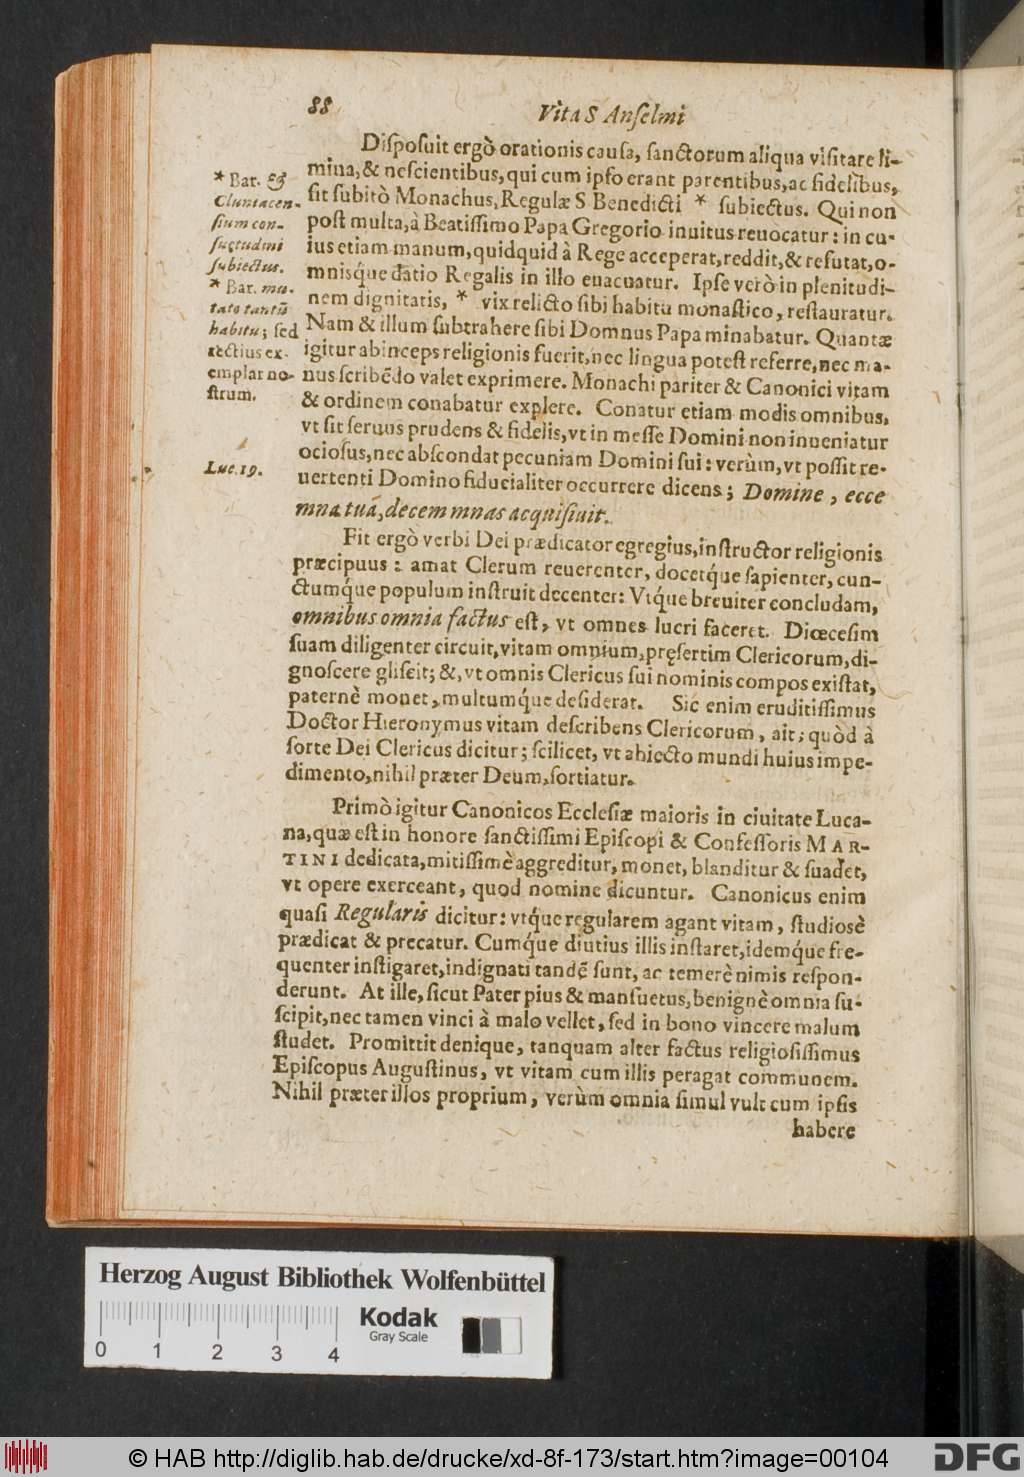 88
Vita S Anſelmi
Diſpoſuit ergò orationis cauſa, ſanctorum aliqua viſitare li-
mina, & neſcientibus, qui cum ipſo erant parentibus, ac fidelibus,
fit ſubitò Monachus, Regulæ S Benedicti * ſubiectus. Qui non
poſt multa, à Beatiſſimo Papa Gregorio inuitus reuocatur: in cu-
ius etiam manum, quidquid à Rege acceperat, reddit, & refutat, o-
mniſq́ue datio Regalis in illo euacuatur. Ipſe verò in plenitudi-
nem dignitatis, * vix relicto ſibi habitu monaſtico, reſtauratur.
Nam & illum ſubtrahere ſibi Domnus Papa minabatur. Quantæ
igitur abinceps religionis fuerit, nec lingua poteſt referre, nec ma-
nus ſcribẽdo valet exprimere. Monachi pariter & Canonici vitam
& ordinem conabatur explere. Conatur etiam modis omnibus,
vt ſit ſeruus prudens & fidelis, vt in meſſe Domini non inueniatur
ocioſus, nec abſcondat pecuniam Domini ſui: verùm, vt poſſit re-
uertenti Domino fiducialiter occurrere dicens; Domine, ecce
mna tua, decem mnas acquiſiuit.
* Bar. &
Cluniacen-
ſium con-
ſuetudini
ſubiectus.
* Bar. mu-
tato tantũ
habitu; ſed
rectius ex-
emplar no-
ſtrum.
Luc. 19.
Fit ergò verbi Dei prædicator egregius, inſtructor religionis
præcipuus: amat Clerum reuerenter, docetq́ue ſapienter, cun-
ctumq́ue populum inſtruit decenter: Vtq́ue breuiter concludam,
omnibus omnia factus eſt, vt omnes lucri faceret. Diœceſim
ſuam diligenter circuit, vitam omnium, pręſertim Clericorum, di-
gnoſcere gliſcit; &, vt omnis Clericus ſui nominis compos exiſtat,
paternè monet, multumq́ue deſiderat. Sic enim eruditiſſimus
Doctor Hieronymus vitam deſcribens Clericorum, ait; quòd à
ſorte Dei Clericus dicitur; ſcilicet, vt abiecto mundi huius impe-
dimento, nihil præter Deum, ſortiatur.
Primò igitur Canonicos Eccleſiæ maioris in ciuitate Luca-
na, quæ eſt in honore ſanctiſſimi Epiſcopi & Confeſſoris MAR-
TINI dedicata, mitiſſimè aggreditur, monet, blanditur & ſuadet,
vt opere exerceant, quod nomine dicuntur. Canonicus enim
quaſi Regularis dicitur: vtq́ue regularem agant vitam, ſtudiosè
prædicat & precatur. Cumq́ue diutius illis inſtaret, idemq́ue fre-
quenter inſtigaret, indignati tandẽ ſunt, ac temerè nimis reſpon-
derunt. At ille, ſicut Pater pius & manſuetus, benignè omnia ſu-
ſcipit, nec tamen vinci à malo vellet, ſed in bono vincere malum
ſtudet. Promittit denique, tanquam alter factus religioſiſſimus
Epiſcopus Auguſtinus, vt vitam cum illis peragat communem.
Nihil præter illos proprium, verùm omnia ſimul vult cum ipſis
habere
Herzog August Bibliothek Wolfenbüttel
Kodak
Gray Scale
0 1 2 3 4
© HAB http://diglib.hab.de/drucke/xd-8f-173/start.htm?image=00104
DFG